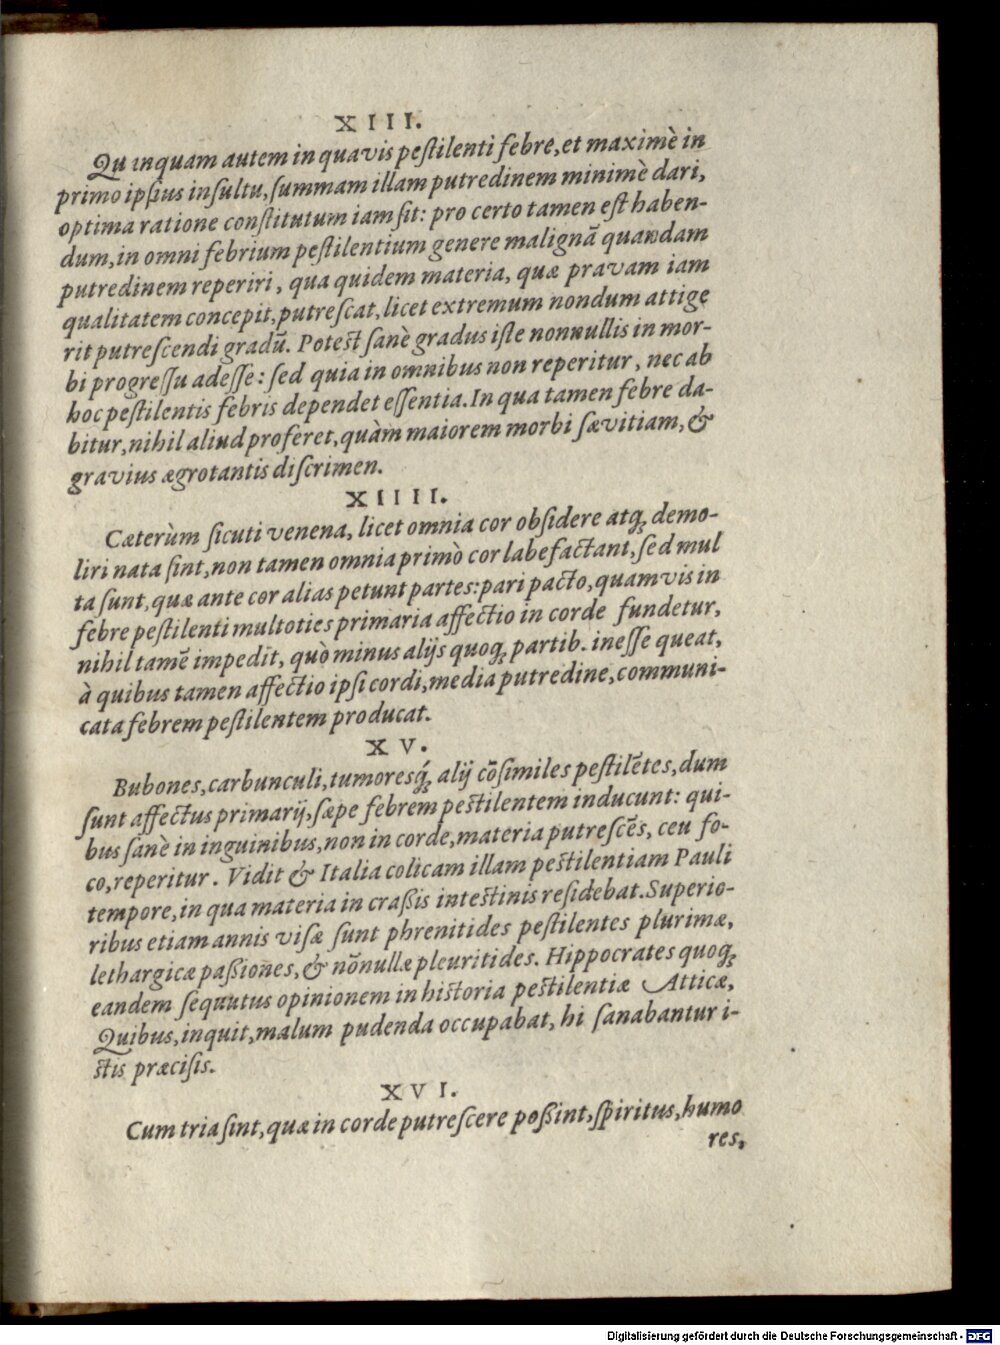 XIII.
Quanquam autem in quavis pestilenti febre, et maximè in
primo ipsius insultu, summam illam putredinem minimè dari,
optima ratione constitutum iam sit: pro certo tamen est haben-
dum, in omni febrium pestilentium genere malignã quandam
putredinem reperiri, qua quidem materia, quæ pravam iam
qualitatem concepit, putrescat, licet extremum nondum attige
rit putrescendi gradũ. Potest sanè gradus iste nonnullis in mor-
bi progressu adesse: sed quia in omnibus non reperitur, nec ab
hoc pestilentis febris dependet essentia. In qua tamen febre da-
bitur, nihil aliud proferet, quàm maiorem morbi sævitiam, &
gravius ægrotantis discrimen.
XIIII.
Cæterùm sicuti venena, licet omnia cor obsidere atq; demo-
liri nata sint, non tamen omnia primò cor labefactant, sed mul
ta sunt, quæ ante cor alias petunt partes: pari pacto, quamvis in
febre pestilenti multoties primaria affectio in corde fundetur,
nihil tamẽ impedit, quò minus alijs quoq; partib. inesse queat,
à quibus tamen affectio ipsi cordi, media putredine, communi-
cata febrem pestilentem producat.
XV.
Bubones, carbunculi, tumoresq́; alij cõsimiles pestilẽtes, dum
sunt affectus primarij, sæpe febrem pestilentem inducunt: qui-
bus sanè in inguinibus, non in corde, materia putrescẽs, ceu fo-
co, reperitur. Vidit & Italia colicam illam pestilentiam Pauli
tempore, in qua materia in crassis intestinis residebat. Superio-
ribus etiam annis visæ sunt phrenitides pestilentes plurimæ,
lethargicæ passiones, & nõnullæ pleuritides. Hippocrates quoq;
eandem sequutus opinionem in historia pestilentiæ Atticæ,
Quibus, inquit, malum pudenda occupabat, hi sanabantur i-
stis præcisis.
XVI.
Cum tria sint, quæ in corde putrescere possint, spiritus, humo
res,
Digitalisierung gefördert durch die Deutsche Forschungsgemeinschaft - DFG